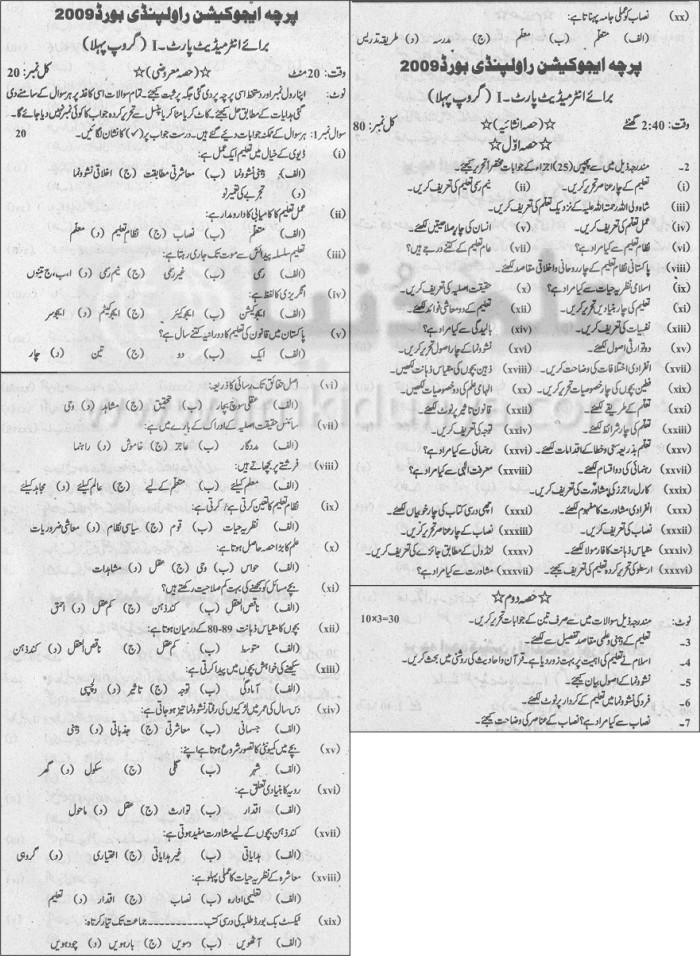 پرچہ ایجوکیشن راولپنڈی بورڈ 2009
برائے انٹرمیڈیٹ پارٹ۔I (گروپ پہلا)
وقت: 20 منٹ ☆(حصہ معروضی)☆ کل نمبر: 20
نوٹ: اپنا رول نمبر اور دستخط اسی پرچہ پر دی گئی جگہ پر ثبت کیجئے۔ تمام سوالات اسی کاغذ پر ہر سوال کے سامنے دی
گئی ہدایات کے مطابق حل کیجئے۔ کاٹ کر یا مٹا کر یا پنسل سے تحریر کردہ جواب کا کوئی نمبر نہیں دیا جائے گا۔
سوال نمبر 1: ہر سوال کے ممکنہ جوابات دیئے گئے ہیں۔ درست جواب پر (✓) کا نشان لگائیں۔ 20
(i) ڈیوی کے خیال میں تعلیم ایک عمل ہے:
(الف) ذہنی نشوونما (ب) معاشرتی مطابقت (ج) اخلاقی نشوونما
(د) تجربے کی تعمیر نو
(ii) عمل تعلیم کا کامیابی کا دارومدار ہے:
(الف) متعلم (ب) نصاب (ج) نظام تعلیم (د) معلم
(iii) تعلیم سلسلہ پیدائش سے موت تک جاری رہتا ہے:
(الف) رسمی (ب) غیر رسمی (ج) نیم رسمی (د) ا، ب، ج تینوں
(iv) انگریزی کا لفظ ہے:
(الف) ایجوکیشن (ب) ایجوکیئر (ج) ایجوکیٹم (د) ایجوسر
(v) پاکستان میں قانون کی تعلیم کا دورانیہ کتنے سال ہے؟
(الف) ایک (ب) دو (ج) تین (د) چار
(vi) اصل حقائق تک رسائی کا ذریعہ:
(الف) عقلی سوچ بچار (ب) تحقیق (ج) مشاہدہ (د) وحی
(vii) سائنس حقیقت اصلیہ کے ادراک کے بارے میں ہے:
(الف) مددگار (ب) عاجز (ج) خاموش (د) راہنما
(viii) فرشتے پر بچھاتے ہیں:
(الف) معلم کیلئے (ب) متعلم کے لیے (ج) عالم کیلئے (د) مجاہد کیلئے
(ix) نظام تعلیم کا تعین کرتی ہے / کرتی ہیں:
(الف) نظریہ حیات (ب) قوم (ج) سیاسی نظام (د) معاشی ضروریات
(x) علم کا بڑا حصہ حاصل ہوتا ہے:
(الف) حواس (ب) وحی (ج) عقل (د) مشاہدات
(xi) بچے مسائل کو سمجھنے کی بہت کم صلاحیت رکھتے ہیں؟
(الف) ناقص العقل (ب) کند ذہن (ج) کم عقل (د) احمق
(xii) بچوں کا مقیاس ذہانت 80-89 کے درمیان ہوتا ہے:
(الف) متوسط (ب) کم عقل (ج) ناقص العقل (د) کند ذہن
(xiii) سیکھنے کی خواہش بچوں میں پیدا کرتی ہے:
(الف) آمادگی (ب) توجہ (ج) تاثیر (د) دلچسپی
(xiv) دس سال کی عمر میں لڑکیوں کی رفتار نشوونما تیز ہو جاتی ہے:
(الف) جسمانی (ب) معاشرتی (ج) جذباتی (د) ذہنی
(xv) بچے میں کمیونٹی کا تصور شروع ہوتا ہے اپنے:
(الف) شہر (ب) گلی (ج) سکول (د) گھر
(xvi) رویہ کا بنیادی تعلق ہے:
(الف) اقدار (ب) توارث (ج) عقل (د) ماحول
(xvii) کند ذہن بچوں کے لیے مشاورت مفید ہوتی ہے:
(الف) ہدایاتی (ب) غیر ہدایاتی (ج) اختیاری (د) گروہی
(xviii) معاشرہ کے نظریہ حیات کا عملی پہلو ہے:
(الف) تعلیمی ادارہ (ب) نصاب (ج) اقدار (د) تعلیم
(xix) ٹیکسٹ بک بورڈ طلبہ کی درسی کتب ـــــــــ جماعت تک تیار کرتا ہے:
(الف) آٹھویں (ب) دسویں (ج) بارہویں (د) چودہویں
(xx) نصاب کو عملی جامہ پہناتا ہے:
(الف) متعلم (ب) معلم (ج) مدرسہ (د) طریقہ تدریس
پرچہ ایجوکیشن راولپنڈی بورڈ 2009
برائے انٹرمیڈیٹ پارٹ۔I (گروپ پہلا)
وقت: 2:40 گھنٹے ☆(حصہ انشائیہ)☆ کل نمبر: 80
☆حصہ اوّل☆
2۔ مندرجہ ذیل میں سے پچیس (25) اجزاء کے جوابات مختصراً تحریر کیجئے۔
(i) تعلیم کے چار عناصر تحریر کریں۔ (ii) نیم رسمی تعلیم کی تعریف کریں۔
(iii) شاہ ولی اللہ رحمتہ اللہ علیہ کے نزدیک تعلیم کی تعریف کریں۔
(iv) عمل تعلیم کی تعریف کریں۔ (v) انسان کی چار صلاحیتیں لکھئے۔
(vi) نظام تعلیم سے کیا مراد ہے؟ (vii) عام تعلیم کے کتنے درجے ہیں؟
(viii) پاکستانی نظام تعلیم کے چار روحانی و اخلاقی مقاصد لکھئے۔
(ix) اسلامی نظریہ حیات سے کیا مراد ہے؟ (x) حقیقت اصلیہ کی تعریف کریں۔
(xi) تعلیم کی چار بنیادیں تحریر کریں۔ (xii) تعلیم کے دو معاشی فوائد لکھئے۔
(xiii) نفسیات کی تعریف کریں۔ (xiv) بالیدگی سے کیا مراد ہے؟
(xv) دو توارثی اصول لکھئے۔ (xvi) نشوونما کے چار اصول تحریر کریں۔
(xvii) انفرادی اختلافات کی وضاحت کریں۔ (xviii) ذہین بچوں کی مقیاس ذہانت لکھیں۔
(xix) فطین بچوں کی چار خصوصیات تحریر کریں۔ (xx) الہامی علم کی دو خصوصیات لکھیں۔
(xxi) تعلم کے طریقے لکھئے۔ (xxii) قانون تاثیر پر نوٹ لکھئے۔
(xxiii) تعلم کی چار شرائط لکھئے۔ (xxiv) توجہ کی تعریف کریں۔
(xxv) تعلم بذریعہ سعی و خطا کے اقدامات لکھئے۔ (xxvi) رہنمائی سے کیا مراد ہے؟
(xxvii) رہنمائی کی دو اقسام لکھئے۔ (xxviii) معرفت الٰہی سے کیا مراد ہے؟
(xxix) کارل راجرز کی مشاورت کی تعریف کریں۔
(xxx) انفرادی مشاورت کا مفہوم لکھئے۔ (xxxi) اچھی درسی کتاب کی چار خوبیاں لکھئے۔
(xxxii) نصاب کی تعریف کریں۔ (xxxiii) نصاب کے چار عناصر تحریر کریں۔
(xxxiv) مقیاس ذہانت کا فارمولا لکھئے۔ (xxxv) لنڈول کے مطابق جائزے کی تعریف کریں۔
(xxxvi) ارسطو کی تحریر کردہ تعلیم کی تعریف کیجئے۔ (xxxvii) مشاورت سے کیا مراد ہے؟
☆حصہ دوم☆
نوٹ: مندرجہ ذیل سوالات میں سے صرف تین کے جوابات تحریر کریں۔ 10×3=30
3۔ تعلیم کے ذہنی و علمی مقاصد تفصیل سے لکھئے۔
4۔ اسلام نے تعلیم کی اہمیت پر بہت زور دیا ہے۔ قرآن و احادیث کی روشنی میں بحث کریں۔
5۔ نشوونما کے اصول بیان کیجئے۔
6۔ فرد کی نشوونما میں تعلیم کے کردار پر نوٹ لکھئے۔
7۔ نصاب سے کیا مراد ہے؟ نصاب کے عناصر کی وضاحت کیجئے۔